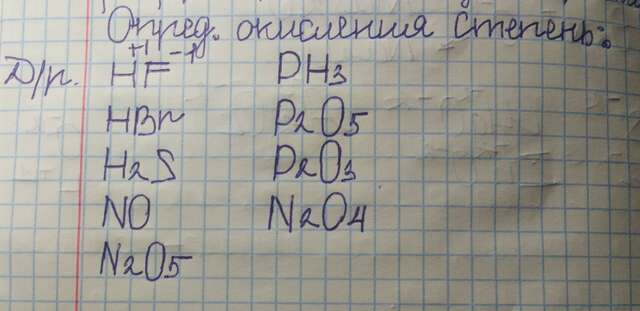 Опред. окисления степень:
Д/р. H⁺¹F⁻¹ PH3
HBr P2O5
H2S P2O3
NO N2O4
N2O5